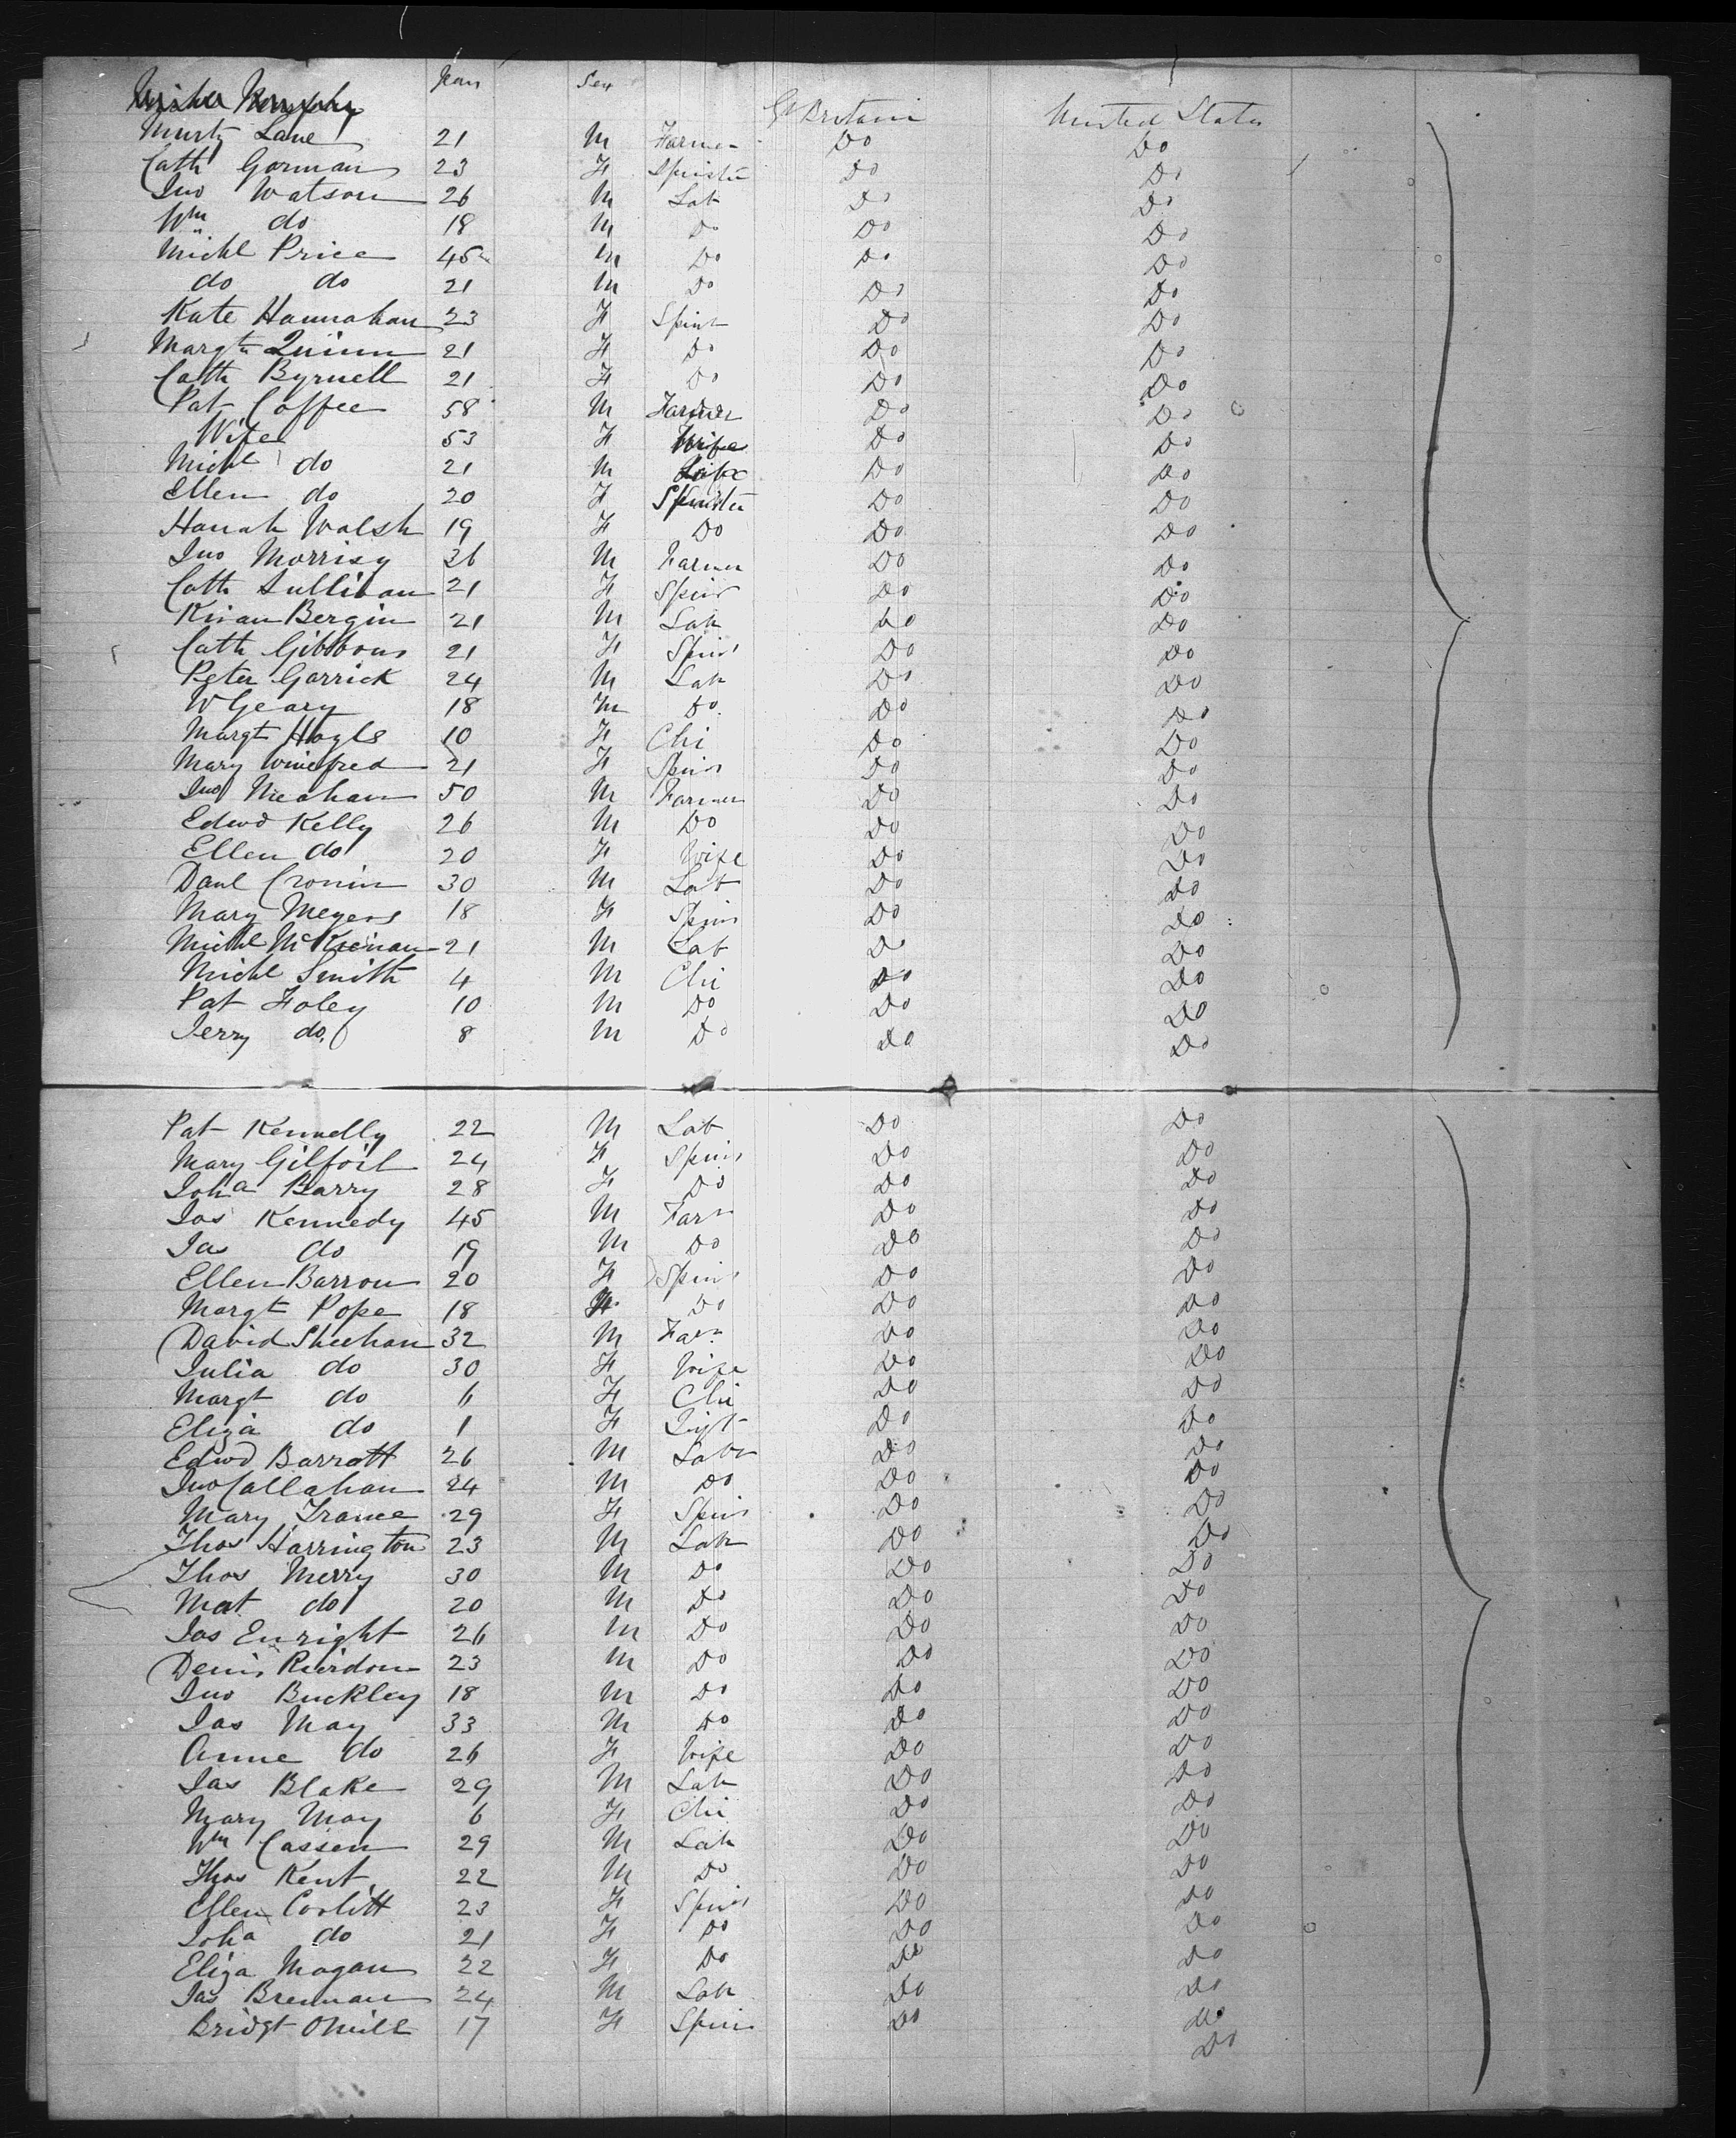 Years Sex
Gt Britain United States
Murty Lane 21 M Farmer Do Do
Cath Gorman 23 F Spinster Do Do
Jno Watson 26 M Lab Do Do
Wm do 18 M Do Do Do
Michl Price 45 M Do Do Do
do do 21 M Do Do Do
Kate Hannahan 23 F Spins Do Do
Margt Quinn 21 F Do Do Do
Cath Byrnell 21 F Do Do Do
Pat Coffee 58 M Farmer Do Do
Wife 53 F Wife Do Do
Michl do 21 M Do Do
Ellen do 20 F Spinster Do Do
Hanah Walsh 19 F Do Do Do
Jno Morrisy 36 M Farmer Do Do
Cath Sullivan 21 F Spins Do Do
Kiran Bergin 21 M Lab Do Do
Cath Gibbons 21 F Spins Do Do
Peter Garrick 24 M Lab Do Do
W Geary 18 M Do Do Do
Margt Hogls 10 F Chi Do Do
Mary Winefred 21 F Spins Do Do
Jno Meahan 50 M Farmer Do Do
Edwd Kelly 26 M Do Do Do
Ellen do 20 F Wife Do Do
Danl Cronin 30 M Lab Do Do
Mary Meyers 18 F Spins Do Do
Michl McKiernan 21 M Lab Do Do
Michl Smith 4 M Chi Do Do
Pat Foley 10 M Do Do Do
Jerry do 8 M Do Do Do
Pat Kennelly 22 M Lab Do Do
Mary Gilfoil 24 F Spins Do Do
Joha Barry 28 F Do Do Do
Jas Kennedy 45 M Farr Do Do
Jas do 19 M Do Do Do
Ellen Barron 20 F Spins Do Do
Margt Pope 18 F Do Do Do
David Sheehan 32 M Farr Do Do
Julia do 30 F Wife Do Do
Margt do 6 F Chi Do Do
Eliza do 1 F Inft Do Do
Edwd Barratt 26 M Labr Do Do
Jno Callahan 24 M Do Do Do
Mary France 29 F Spins Do Do
Thos Harrington 23 M Lab Do Do
Thos Merry 30 M Do Do Do
Mat do 20 M Do Do Do
Jas Enright 26 M Do Do Do
Denis Rierdon 23 M Do Do Do
Jno Buckley 18 M Do Do Do
Jas May 33 M Do Do Do
Anne do 26 F Wife Do Do
Jas Blake 29 M Lab Do Do
Mary May 6 F Chi Do Do
Wm Cassen 29 M Lab Do Do
Thos Kent 22 M Do Do Do
Ellen Corlitt 23 F Spins Do Do
Joha do 21 F Do Do Do
Eliza Magan 22 F Do Do Do
Jas Brennan 24 M Lab Do Do
Bridgt ONeill 17 F Spins Do Do
Do